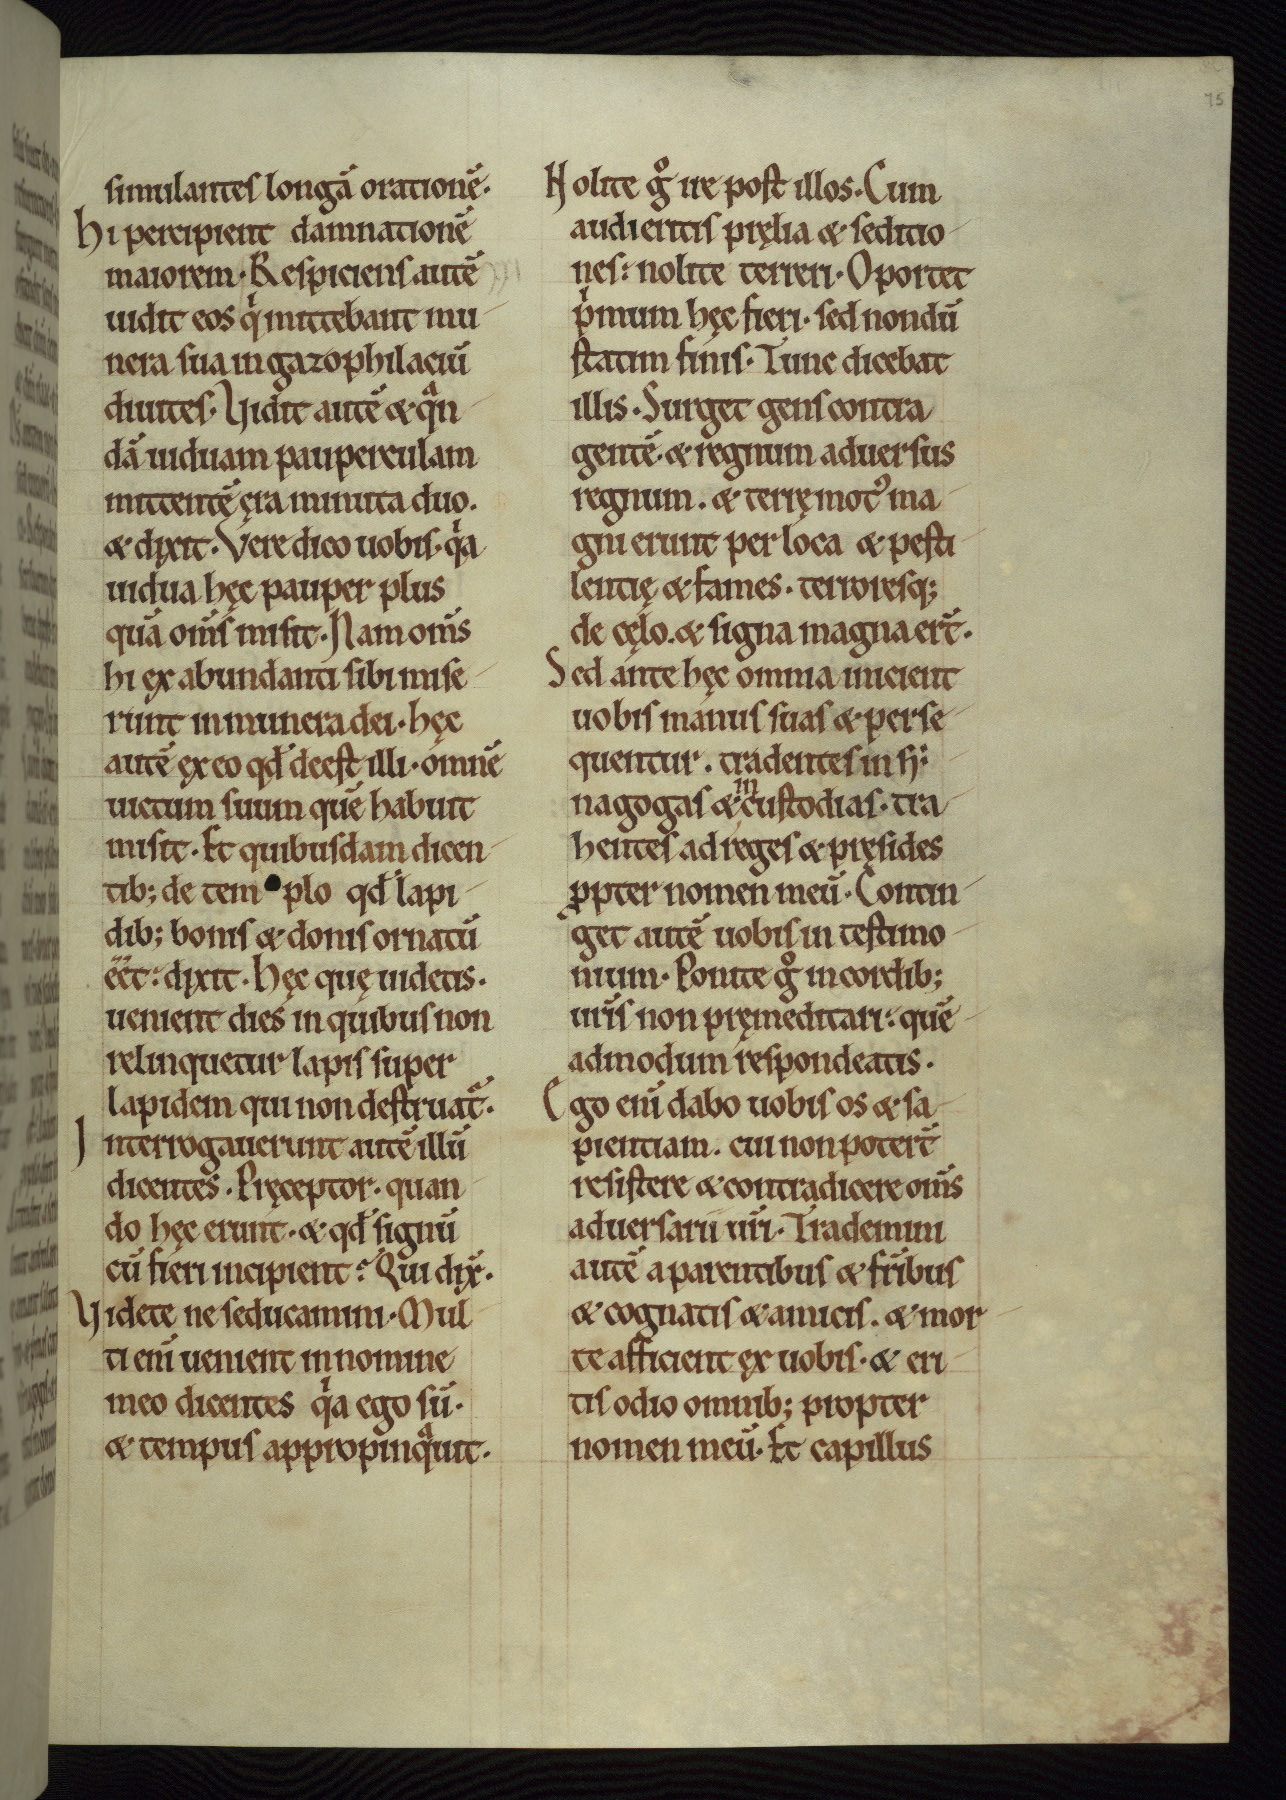 75
simulantes longā orationē.
Hi percipient damnationē
maiorem. Respiciens autē
uidit eos qͥ mittebant mu
nera sua in gazophilaciū
diuites. Vidit autē & qͣn
dā uiduam pauperculam
mittentē ęra minuta duo.
& dixit. Vere dico uobis. qͥa
uidua hęc pauper plus
quā om̄s misit. Nam om̄s
hi ex abundanti sibi mise
runt in munera dei. hęc
autē ex eo qd̄ deest illi. omnē
uictum suum quē habuit
misit. Et quibusdam dicen
tib; de tem plo qd̄ lapi
dib; bonis & donis ornatū
eēt: dixit. Hęc quę uidetis.
uenient dies in quibus non
relinquetur lapis super
lapidem qui non destruat̄.
Interrogauerunt autē illū
dicentes. Pręceptor. quan
do hęc erunt. & qd̄ signū
cū fieri incipient? Qui dix̄.
Videte ne seducamini. Mul
ti enī uenient in nomine
meo dicentes qͥa ego sū.
& tempus appropinqͣuit.
Nolite gͦ ire post illos. Cum
audieritis pręlia & seditio
nes: nolite terreri. Oportet
pͥmum hęc fieri. sed nondū
statim finis. Tunc dicebat
illis. Surget gens contra
gentē. & regnum aduersus
regnum. & terręmotꝰ ma
gni erunt per loca & pesti
lentię & fames. terroresq;
de cęlo. & signa magna er̄t.
Sed ante hęc omnia inicient
uobis manus suas & perse
quentur. tradentes in sy
nagogas & in custodias. tra
hentes ad reges & pręsides
ꝓpter nomen meū. Contin
get autē uobis in testimo
nium. Ponite gͦ in cordib;
ur̄is non pręmeditari: quē
admodum respondeatis.
Ego enī dabo uobis os & sa
pientiam. cui non poter̄t
resistere & contradicere om̄s
aduersarii ur̄i. Trademini
autē a parentibus & fr̄ibus
& cognatis & amicis. & mor
te afficient ex uobis. & eri
tis odio omnib; propter
nomen meū. Et capillus